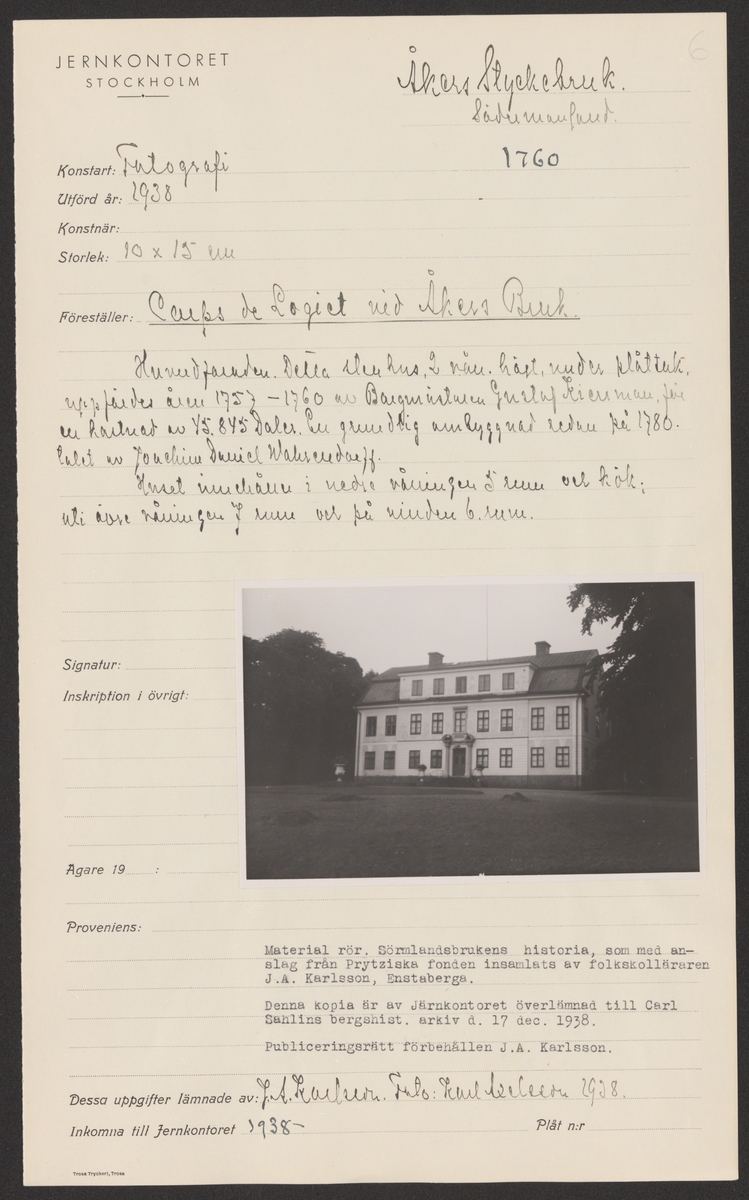 6
JERNKONTORET
STOCKHOLM
Åkers Styckebruk.
Södermanland.
1760
Konstart: Fotografi
Utförd år: 1938
Konstnär:
Storlek: 10 x 15 cm
Föreställer: Corps de Logiet vid Åkers Bruk.
Huvudfasaden. Detta stenhus, 2 vån. högt, under plåttak,
uppfördes åren 1757 – 1760 av Borgmästaren Gustaf Kierman, för
en kostnad av 45.845 Daler. En grundlig ombyggnad redan på 1780.
talet av Joachim Daniel Wahrendorff.
Huset innehåller i nedre våningen 5 rum och kök;
uti övre våningen 7 rum och på vinden 6. rum.
Signatur:
Inskription i övrigt:
Ägare 19 :
Proveniens:
Material rör. Sörmlandsbrukens historia, som med an-
slag från Prytziska fonden insamlats av folkskolläraren
J.A. Karlsson, Enstaberga.
Denna kopia är av Järnkontoret överlämnad till Carl
Sahlins bergshist. arkiv d. 17 dec. 1938.
Publiceringsrätt förbehållen J.A. Karlsson.
Dessa uppgifter lämnade av: J.A. Karlsson. Foto: Karl Axelsson 1938.
Inkomna till Jernkontoret 1938– Plåt n:r
Trosa Tryckeri, Trosa